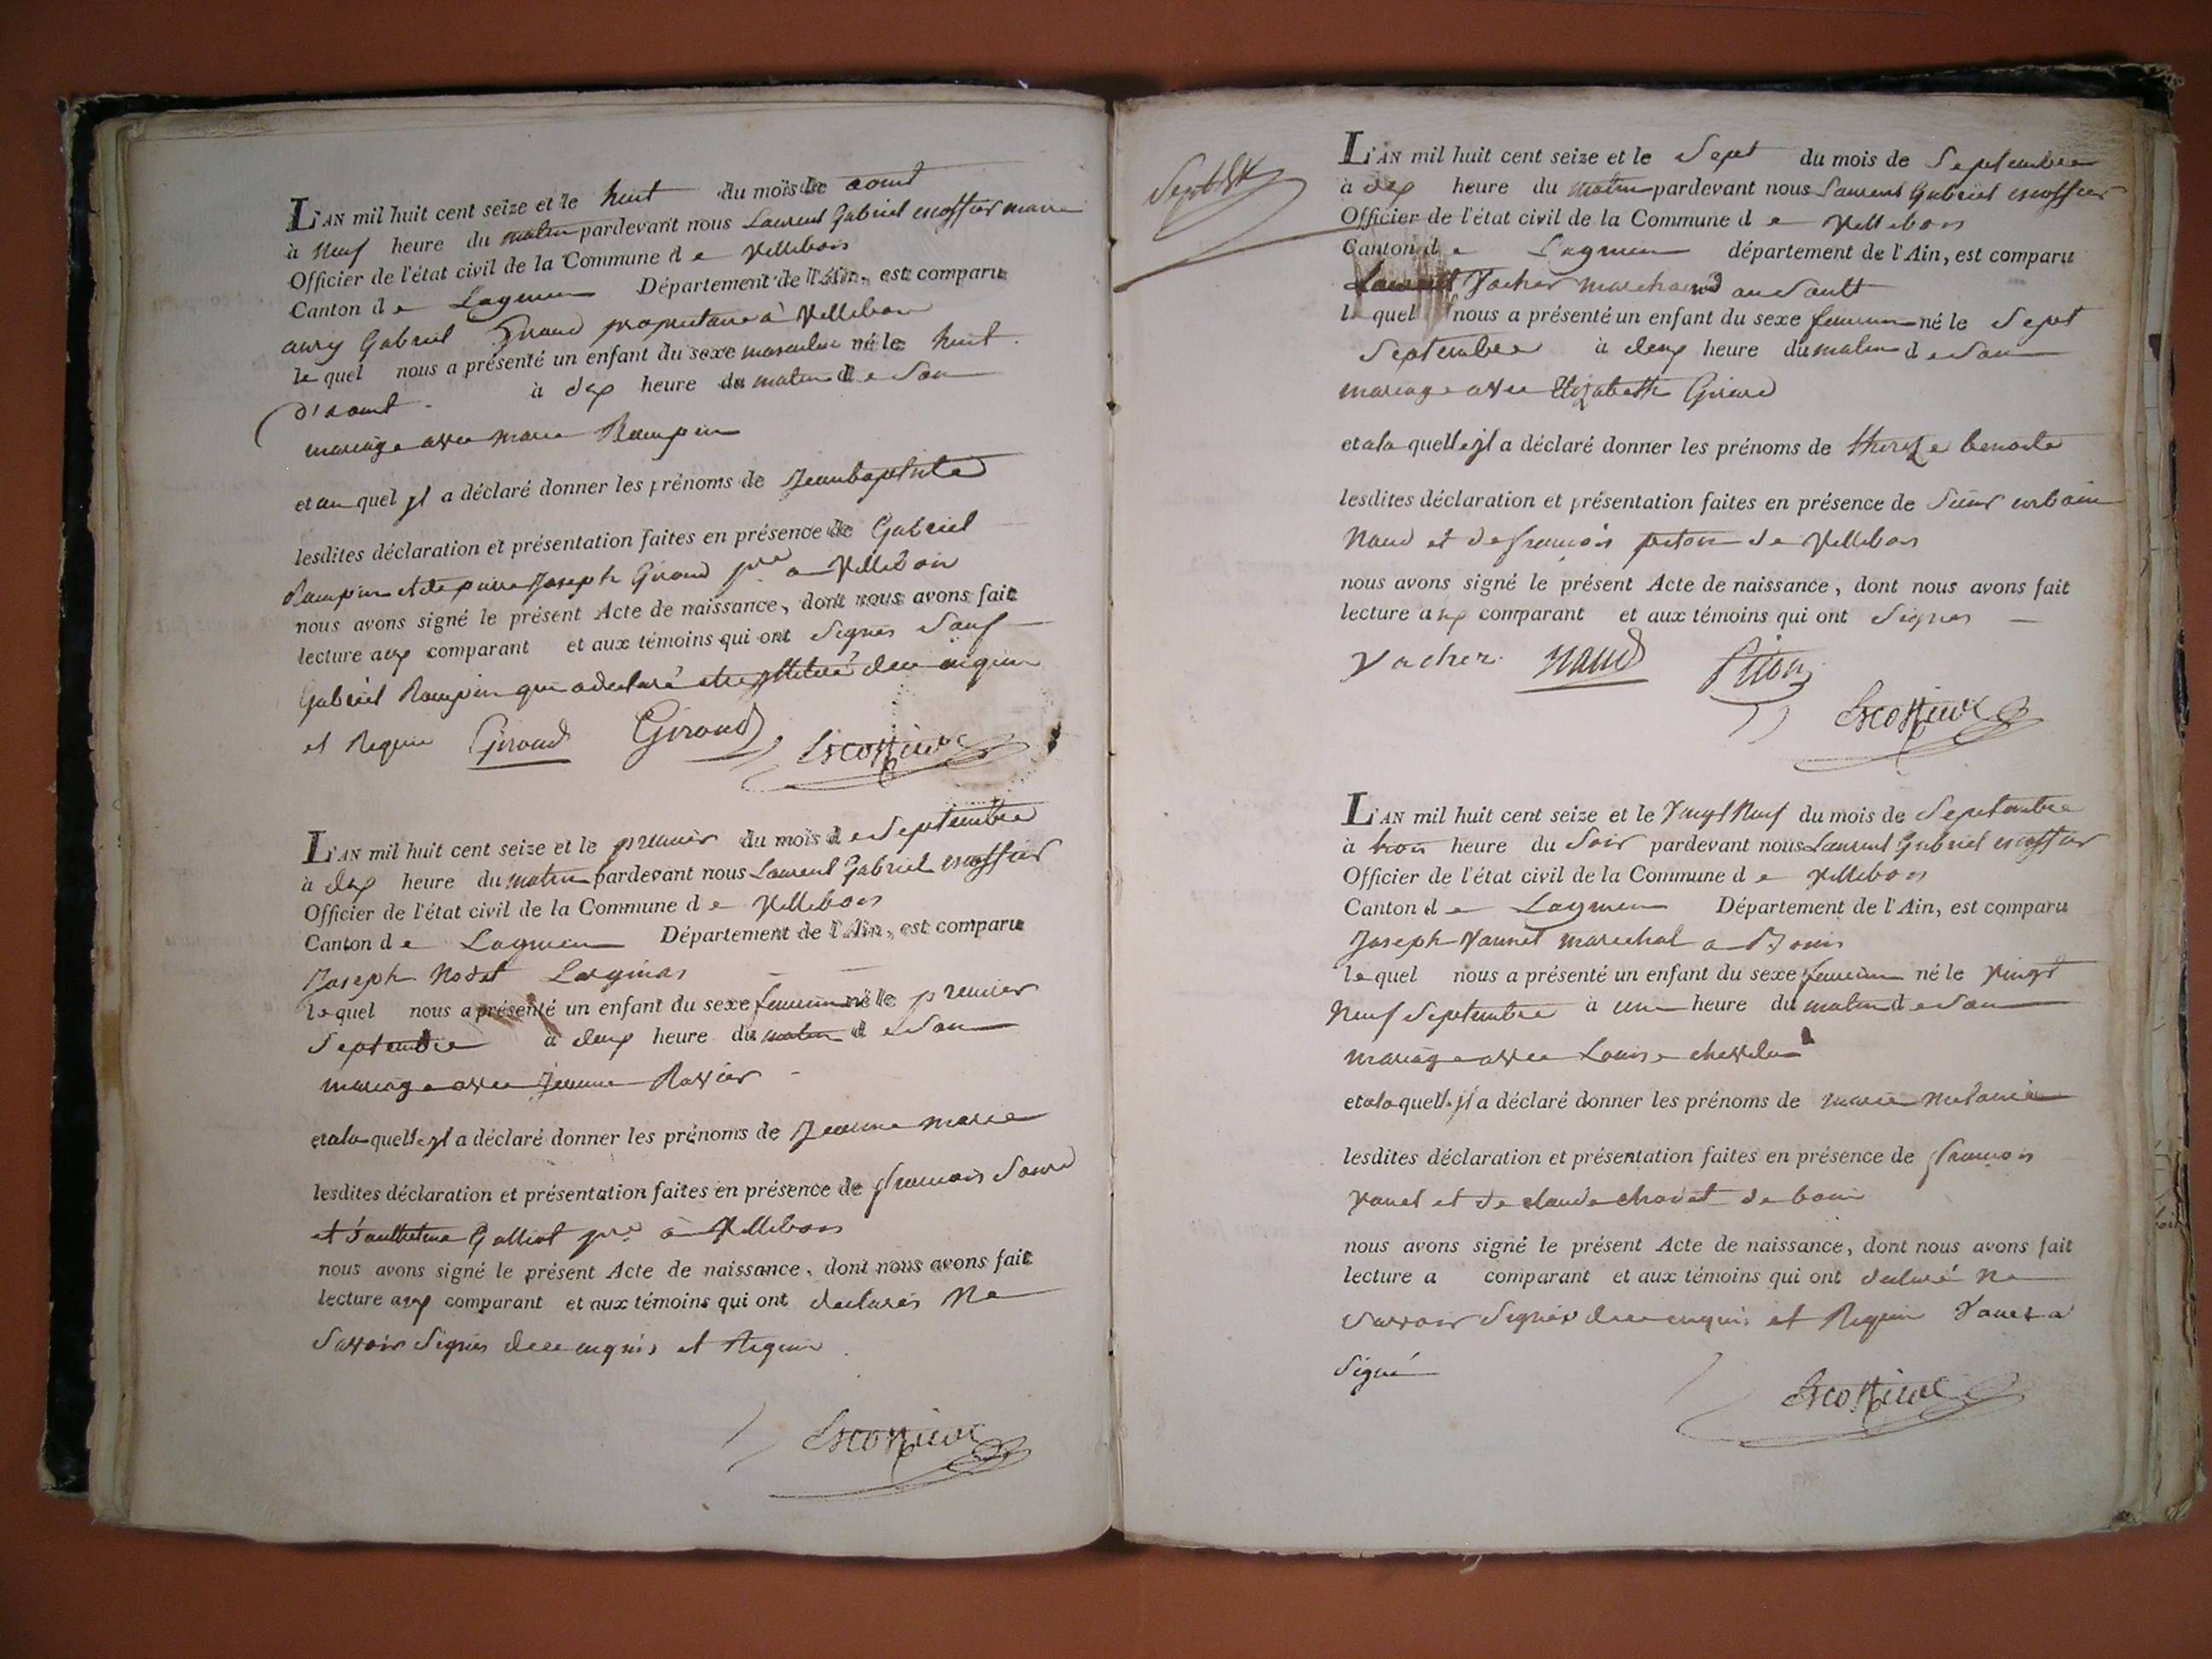 L'AN mil huit cent seize et le huit du mois de aout
à Neuf heure du matin pardevant nous Laurent Gabriel escoffier maire
Officier de l'état civil de la Commune de Villebois
Canton de Lagnieu Département de l'Ain, est comparu
Gabriel Giraud propriétaire à Villebois
le quel nous a présenté un enfant du sexe masculin né le huit
d'aout à dix heure du matin de son
mariage avec marie Rampin
et au quel jl a déclaré donner les prénoms de Jean baptiste
lesdites déclaration et présentation faites en présence de Gabriel
Rampin et de pierre Joseph Giraud pre a Villebois
nous avons signé le présent Acte de naissance, dont nous avons fait
lecture aux comparant et aux témoins qui ont Signés Sauf
Gabriel Rampin qui a declaré être jlliteré de ce enquis
et Requis Giraud Giraud Escoffier
L'AN mil huit cent seize et le premier du mois de Septembre
à dix heure du matin pardevant nous Laurent Gabriel escoffier
Officier de l'état civil de la Commune de Villebois
Canton de Lagnieu Département de l'Ain, est comparu
Joseph Nodet
le quel nous a présenté un enfant du sexe feminin né le premier
Septembre à deux heure du matin de son
mariage avec Jeanne Ravier
et ala quelle jl a déclaré donner les prénoms de Jeanne marie
lesdites déclaration et présentation faites en présence de francois
et d'anthelme Galliot pre à Villebois
nous avons signé le présent Acte de naissance, dont nous avons fait
lecture aux comparant et aux témoins qui ont declarés Ne
Savoir Signés de ce enquis et Requis
Escoffier
Sept bre
L'AN mil huit cent seize et le Sept du mois de Septembre
à dix heure du matin pardevant nous Laurent Gabriel escoffier
Officier de l'état civil de la Commune de Villebois
Canton de Lagnieu département de l'Ain, est comparu
Laurent Vacher marchand au Sault
le quel nous a présenté un enfant du sexe feminin né le Sept
Septembre à deux heure du matin de son
mariage avec Elizabeth Girard
et ala quelle jl a déclaré donner les prénoms de thereze benoite
lesdites déclaration et présentation faites en présence de Sieur urbain
Naud et de françois piton de Villebois
nous avons signé le présent Acte de naissance, dont nous avons fait
lecture aux comparant et aux témoins qui ont Signés
Vacher Naud Piton
Escoffier
L'AN mil huit cent seize et le Vingt Neuf du mois de Septembre
à trois heure du Soir pardevant nous Laurent Gabriel escoffier
Officier de l'état civil de la Commune de Villebois
Canton de Lagnieu Département de l'Ain, est comparu
Joseph Vannet marechal a
le quel nous a présenté un enfant du sexe feminin né le Vingt
Neuf Septembre à une heure du matin de son
mariage avec Louise
et ala quelle jl a déclaré donner les prénoms de marie melanie
lesdites déclaration et présentation faites en présence de francois
Vanet et de claude chavet de
nous avons signé le présent Acte de naissance, dont nous avons fait
lecture a comparant et aux témoins qui ont declaré Ne
Savoir Signés de ce enquis et Requis Vanet a
Signé
Escoffier